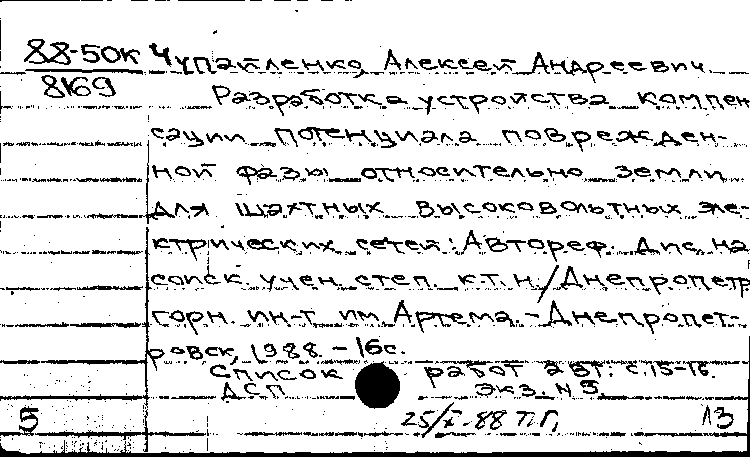 88-50к Чупайленко, Алексей Андреевич
8169 Разработка устройства компен
сации потенциала поврежден-
ной фазы относительно земли
для шахтных высоковольтных эле-
ктрических сетей: Автореф. дис. на
соиск. учен. степ. к.т.н./Днепропетр
горн. ин-т им. Артема. - Днепропет-
ровск, 1988. - 16с.
Список работ авт.: с.15-16.
ДСП экз. N 3.
5 25/I-88 ПГ, ЛЗ